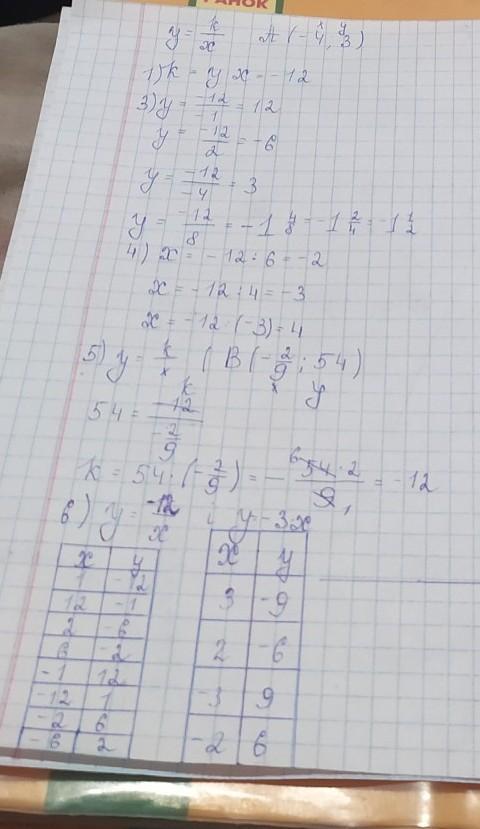 РАНОК
y = k/x A (-4, 3)
x y
1) k = y x = -12
3) y = -12/-1 = 12
y = -12/2 = -6
y = -12/-4 = 3
y = -12/8 = -1 4/8 = -1 2/4 = -1 1/2
4) x = -12 : 6 = -2
x = -12 : 4 = -3
x = -12 : (-3) = 4
5) y = k/x ( B (-2/9 ; 54)
x y
k
54 = -12/-2/9
k = 54 · (-2/9) = - 54 · 2/9 = -12
6 1
6) y = -12/x i y - 3x
x y
1 -12
12 -1
2 -6
6 -2
-1 12
-12 1
-2 6
-6 2
x y
3 -9
2 -6
-3 9
-2 6